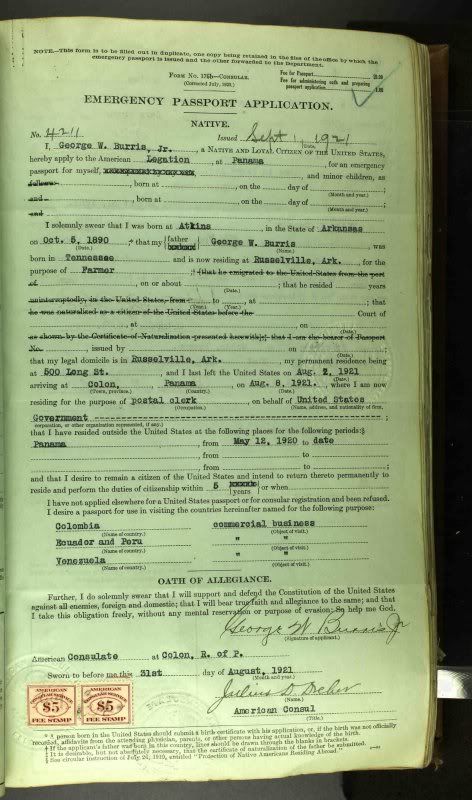 NOTE.—This form is to be filled out in duplicate, one copy being retained in the files of the office by which the
emergency passport is issued and the other forwarded to the Department.
FORM No. 176b—CONSULAR.
(Corrected July, 1920.)
Fee for Passport
Fee for administering oath and preparing
passport application
EMERGENCY PASSPORT APPLICATION.
NATIVE.
No. 4211 Issued Sept 1, 1921
Date.
I, George W. Burris, Jr., a NATIVE AND LOYAL CITIZEN OF THE UNITED STATES,
hereby apply to the American Legation, at Panama, for an emergency
passport for myself, and minor children, as
follows: , born at , on the day of ;
(Month and year.)
and , born at , on the day of ;
(Month and year.)
and
I solemnly swear that I was born at Atkins, in the State of Arkansas
on Oct. 5, 1890 † that my {father George W. Burris, was
(Date.) (Name.)
born in Tennessee and is now residing at Russelville, Ark., for the
purpose of Farmer † {that he emigrated to the United States from the port
of , on or about ; that he resided years
(Date.)
uninterruptedly, in the United States, from to , at ; that
(Year.) (Year.)
he was naturalized as a citizen of the United States before the Court of
, at , on
(Date.)
as shown by the Certificate of Naturalization presented herewith‡; that I am the bearer of Passport
No. , issued by on ;
(Date.)
that my legal domicile is in Russelville, Ark., my permanent residence being
at 500 Long St., and I last left the United States on Aug. 2, 1921
(Date.)
arriving at Colon, Panama on Aug. 8, 1921., where I am now
(Town, province.) (Country.) (Date.)
residing for the purpose of postal clerk, on behalf of United States
(Occupation.) (Name, address, and nationality of firm,
Government ;
corporation, or other organization represented, if any.)
that I have resided outside the United States at the following places for the following periods:§
Panama, from May 12, 1920 to date
, from to
, from to ,
and that I desire to remain a citizen of the United States and intend to return thereto permanently to
reside and perform the duties of citizenship within 5 {years} or when
I have not applied elsewhere for a United States passport or for consular registration and been refused.
I desire a passport for use in visiting the countries hereinafter named for the following purpose:
Colombia commercial business
(Name of country.) (Object of visit.)
Ecuador and Peru " "
(Name of country.) (Object of visit.)
Venezuela " "
(Name of country.) (Object of visit.)
OATH OF ALLEGIANCE.
Further, I do solemnly swear that I will support and defend the Constitution of the United States
against all enemies, foreign and domestic; that I will bear true faith and allegiance to the same; and that
I take this obligation freely, without any mental reservation or purpose of evasion: So help me God.
George W Burris Jr
(Signature of applicant.)
American Consulate at Colon, R. of P.
Sworn to before me this 31st day of August, 1921
(Month and year.)
Julius D. Dreher
(Name.)
American Consul
(Title.)
AMERICAN
CONSULAR SERVICE
$5
FEE STAMP
AMERICAN
CONSULAR SERVICE
$5
FEE STAMP
* A person born in the United States should submit a birth certificate with his application, or, if the birth was not officially
recorded, affidavits from the attending physician, parents, or other persons having actual knowledge of the birth.
† If the applicant's father was born in this country, lines should be drawn through the blanks in brackets.
‡ It is desirable, but not absolutely necessary, that the certificate of naturalization of the father be submitted.
§ See circular instruction of July 26, 1910, entitled "Protection of Native Americans Residing Abroad."